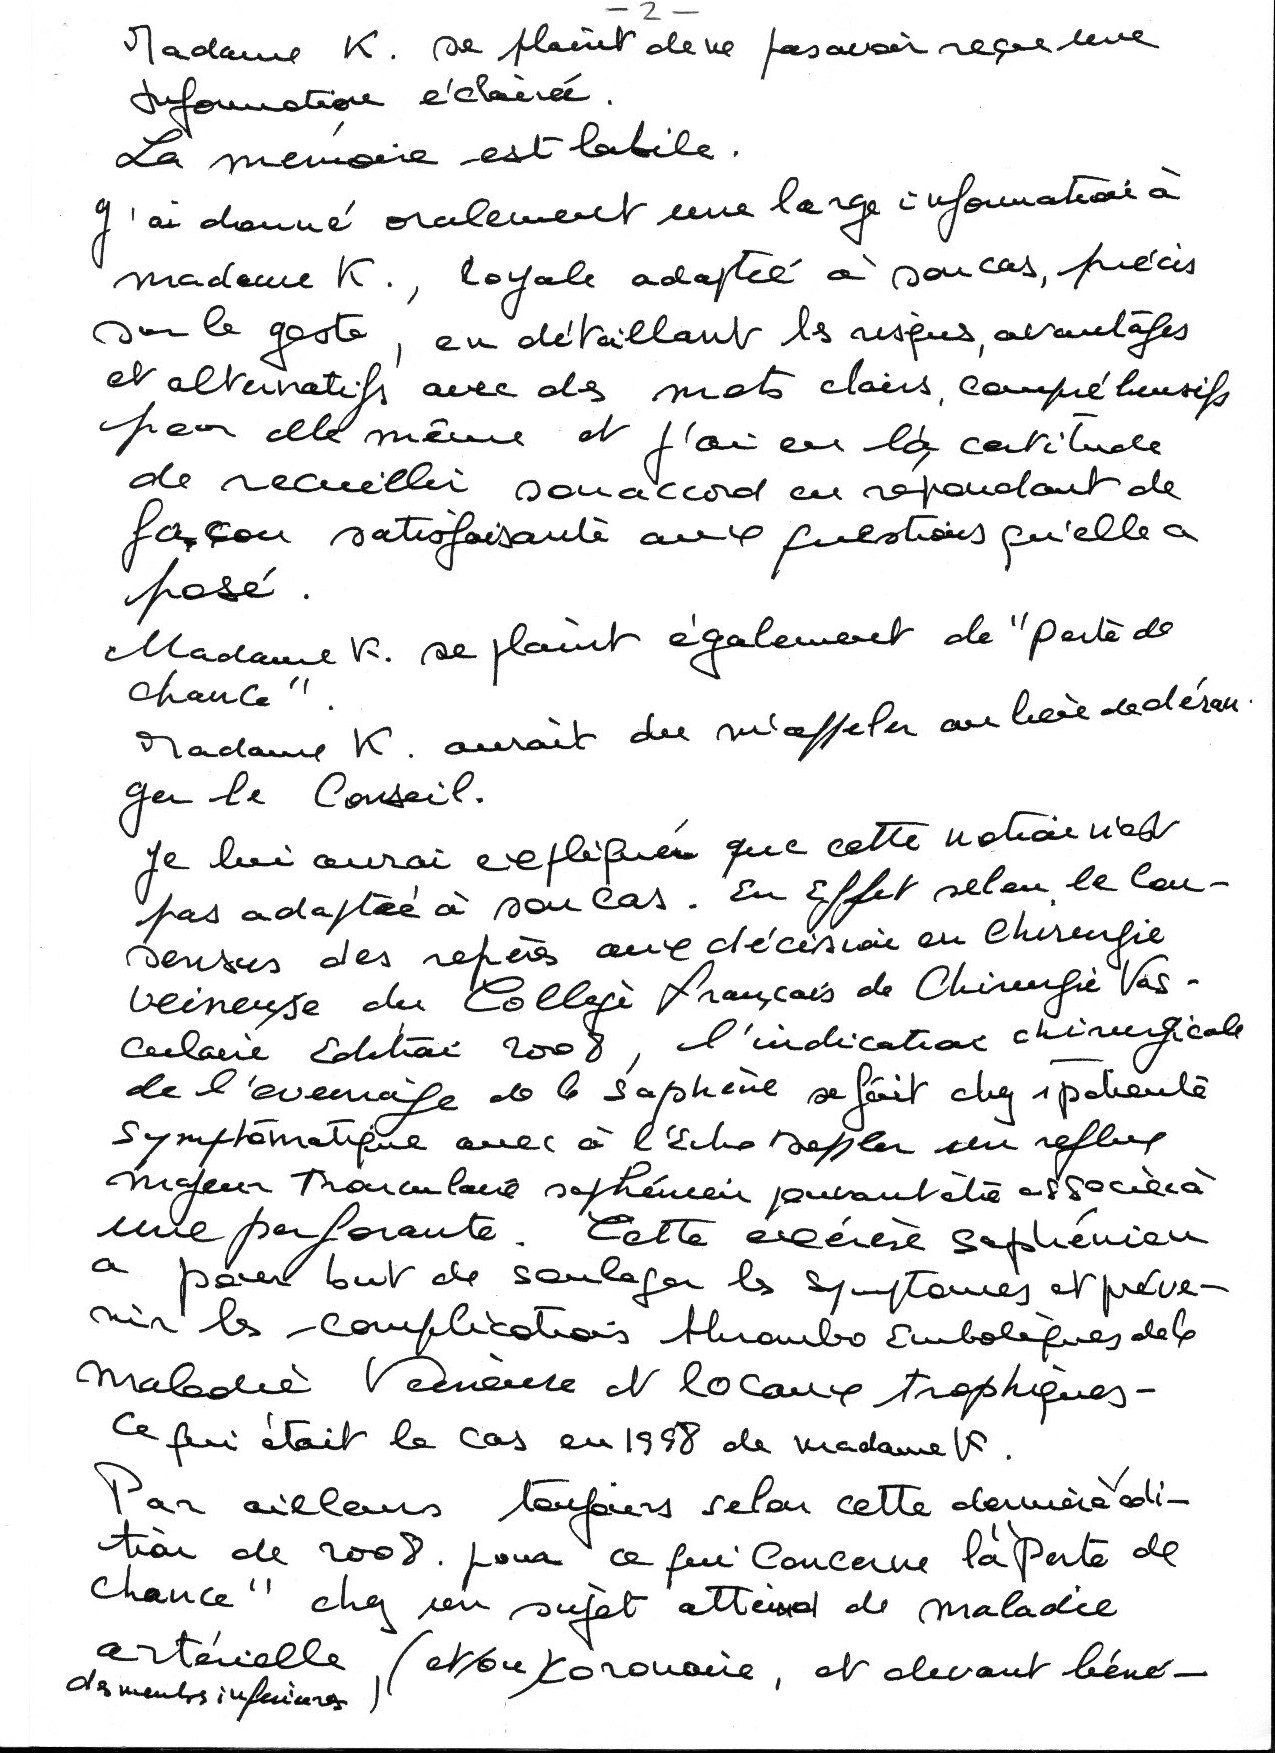 - 2 -
Madame K. se plaint de ne pas avoir reçue une
Information éclairée.
La mémoire est labile.
J'ai donné oralement une large information à
madame K., loyale adaptée à son cas, précis
sur le geste, en détaillant les risques, avantages
et alternatifs avec des mots clairs, compréhensifs
pour elle même et j'ai eu la certitude
de recueillir son accord en repondant de
façon satisfaisante aux questions qu'elle a
posé.
Madame K. se plaint également de "perte de
chance".
Madame K. aurait du m'appeler au lieu de déran-
ger le Conseil.
Je lui aurai expliquer que cette notion n'est
pas adaptée à son cas. En Effet selon le Con-
sensus des repères aux décision en Chirurgie
veineuse du Collège français de Chirurgie Vas-
culaire Edition 2008, l'indication chirurgicale
de l'eveinage de la Saphène se fait chez 1 patiente
symptômatique avec à l'Echo Doppler un reflux
majeur tronculaire saphénien pouvant être associée à
une perforante. Cette exérèse saphénien
a pour but de soulager les symptomes et préve-
nir les complications thrombo Emboliques de la
Maladie Veineuse et locaux trophiques-
Ce qui était le cas en 1998 de madame K.
Par ailleurs toujours selon cette dernière édi-
tion de 2008. pour ce qui Concerne la "Perte de
chance" chez un sujet atteind de maladie
artérielle, (et/ou) coronaire, et devant béné-
des membres inférieures